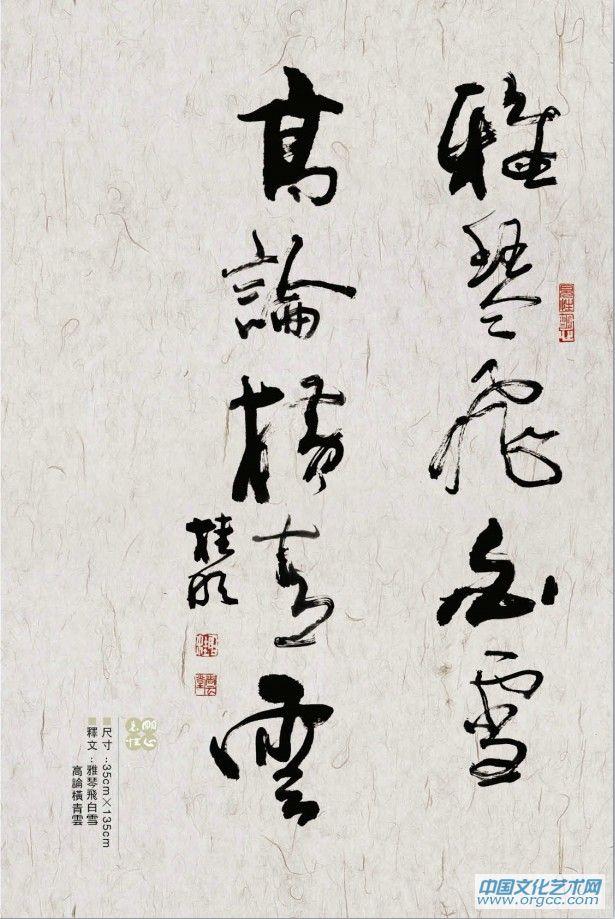 雅琴飛白雪
高論橫青雲
桂明
尺寸:35cm×135cm
釋文:雅琴飛白雪
高論橫青雲
中国文化艺术网
www.orgcc.com